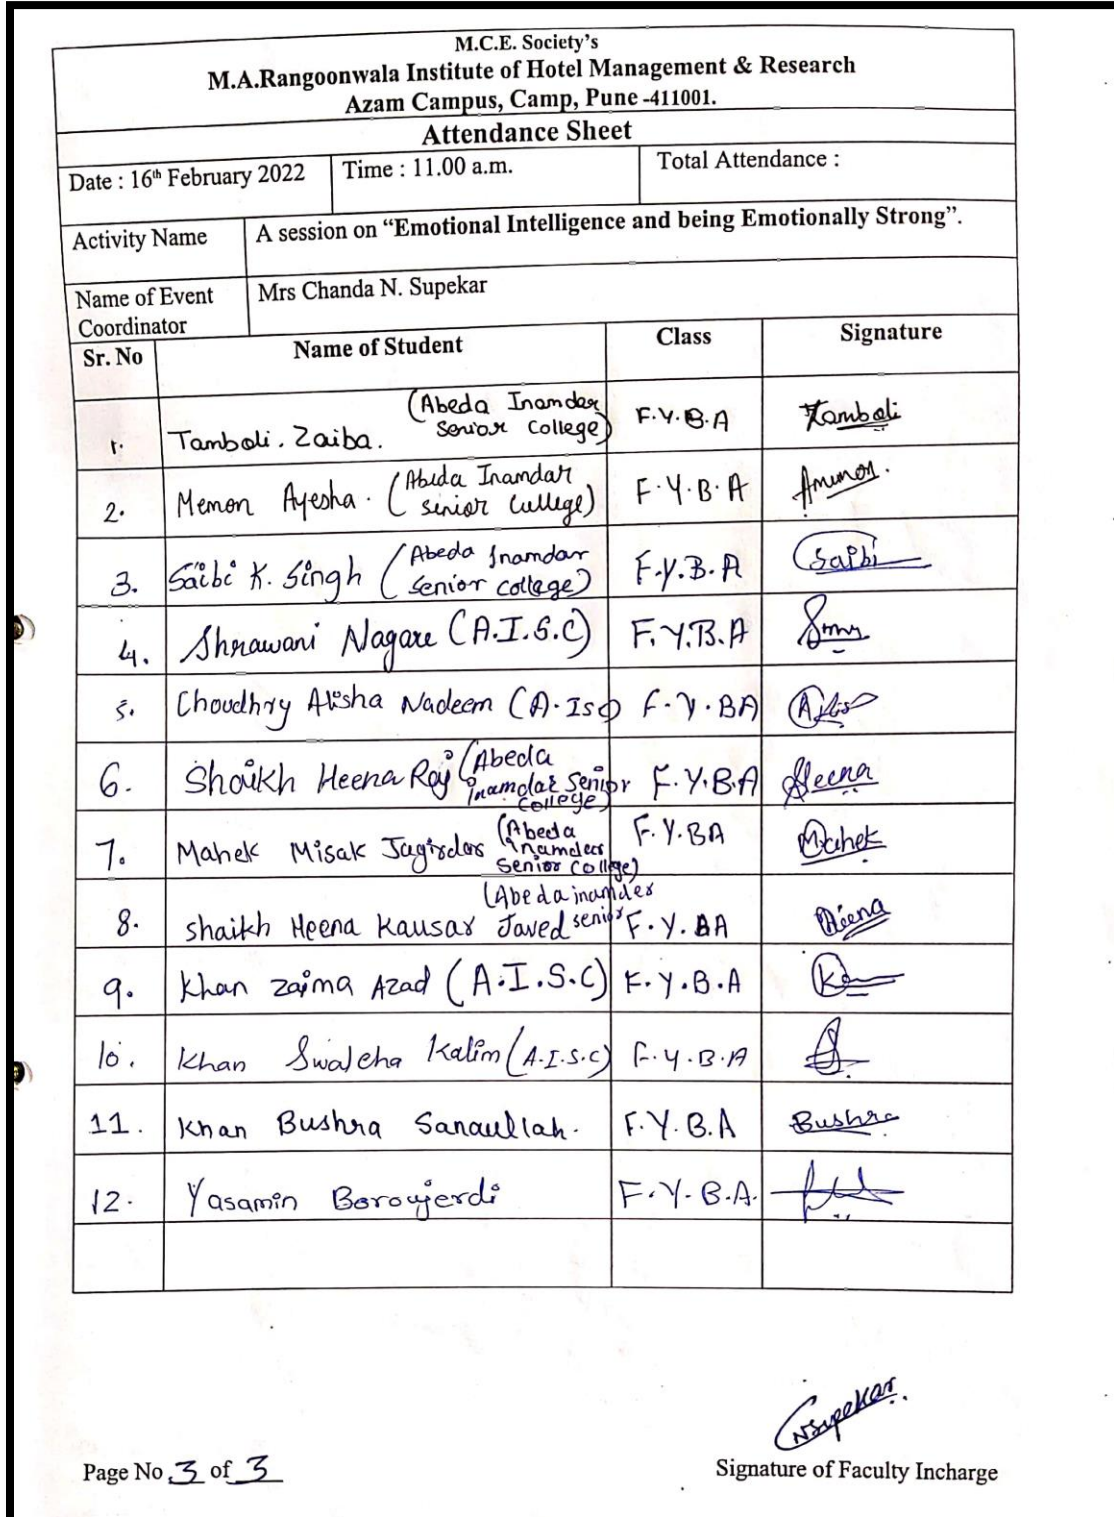 M.C.E. Society's
M.A.Rangoonwala Institute of Hotel Management & Research
Azam Campus, Camp, Pune -411001.
Attendance Sheet
Date : 16th February 2022 Time : 11.00 a.m. Total Attendance :
Activity Name A session on “Emotional Intelligence and being Emotionally Strong”.
Name of Event Coordinator Mrs Chanda N. Supekar
Sr. No Name of Student Class Signature
1. Tamboli. Zaiba. (Abeda Inamdar Senior College) F.Y.B.A Tamboli
2. Memon Ayesha. (Abeda Inamdar senior college) F.Y.B.A
3. Saibi K. Singh (Abeda Inamdar senior college) F.Y.B.A Saibi
4. Shrawani Nagare (A.I.S.C) F.Y.B.A
5. Choudhry Alisha Nadeem (A.ISC) F.Y.BA
6. Shaikh Heena Roj (Abeda inamdar senior college) F.Y.B.A Heena
7. Mahek Misak Jagirdar (Abeda inamdar senior college) F.Y.BA Mahek
8. shaikh Heena Kausar Javed (Abeda inamder senior F.Y.BA Heena
9. Khan Zaima Azad (A.I.S.C) F.Y.B.A
10. Khan Swaleha Kalim (A.I.S.C) F.Y.B.A
11. Khan Bushra Sanaullah. F.Y.B.A Bushra
12. Yasamin Boroujerdi F.Y.B.A.
NSupekar.
Page No 3 of 3 Signature of Faculty Incharge